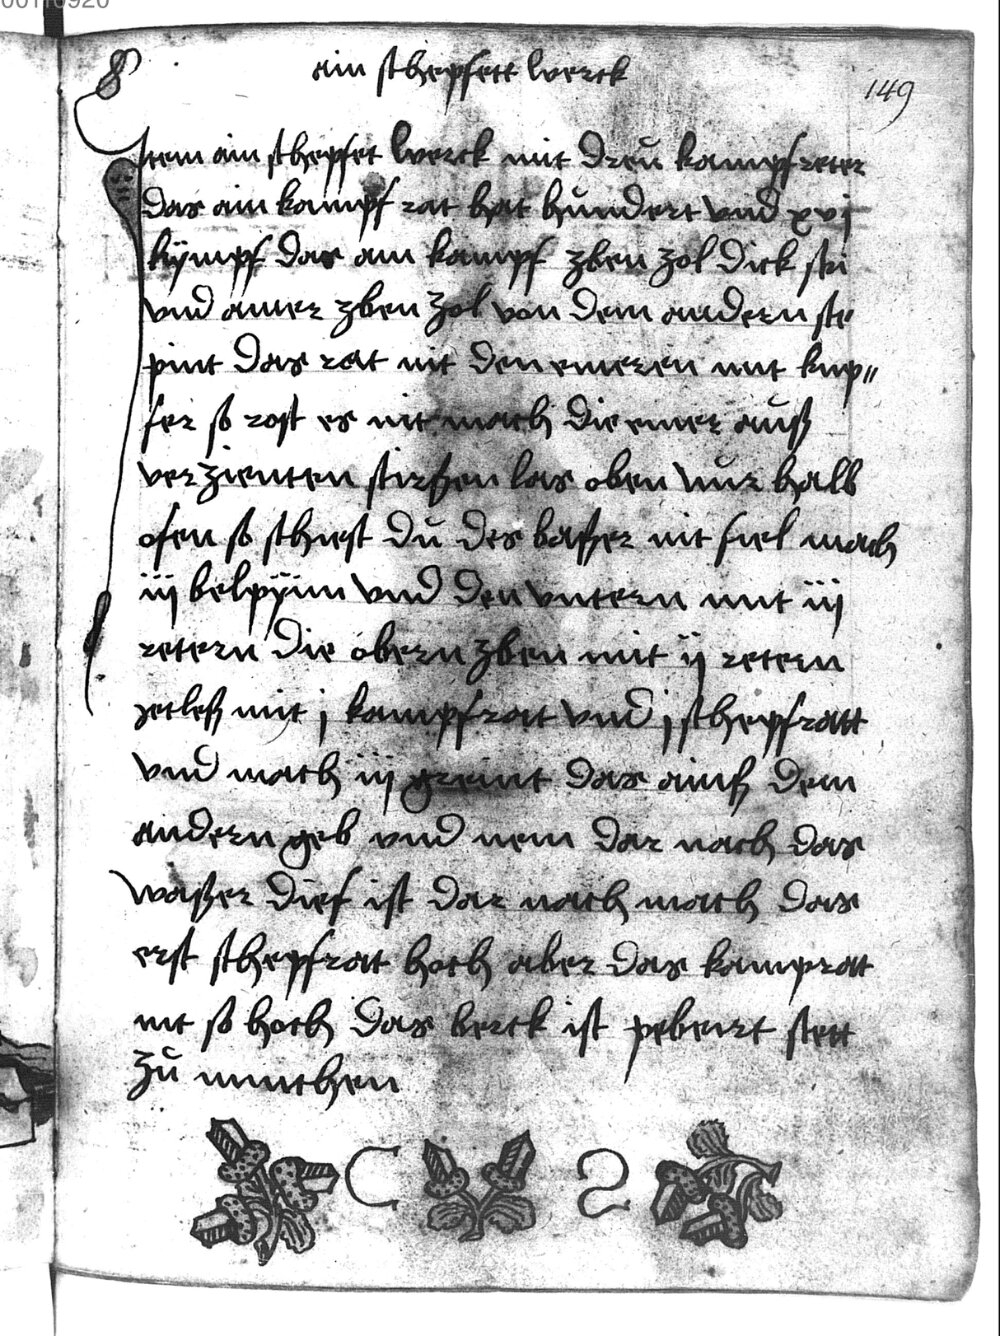 00110920
ain schepfett werck
149
Item ain schepfet werck mit dreu kampfreter
das ain kampf rat hat hundert vnd xvj
kympf das ain kampf zben zol dick sei
vnd ainer zben zol von dem andern ste
pint das rat nit den eineren mit kup„
fer so rost es nit mach die eimer auß
verzienten stirzen las oben nur halb
ofen so schust du des baßer nit fiel mach
iij belpam vnd den vntern mit iij
retern die obern zben mit ij retern
zetleß mit j kampfrat vnd j schepfratt
vnd mach iij greint das ainß dem
andern geb vnd nem dar nach das
waßer dief ist dar nach mach das
erst schepfrat hoch aber das kamprat
nit so hoch das berck ist pebeirt stett
zu munchen